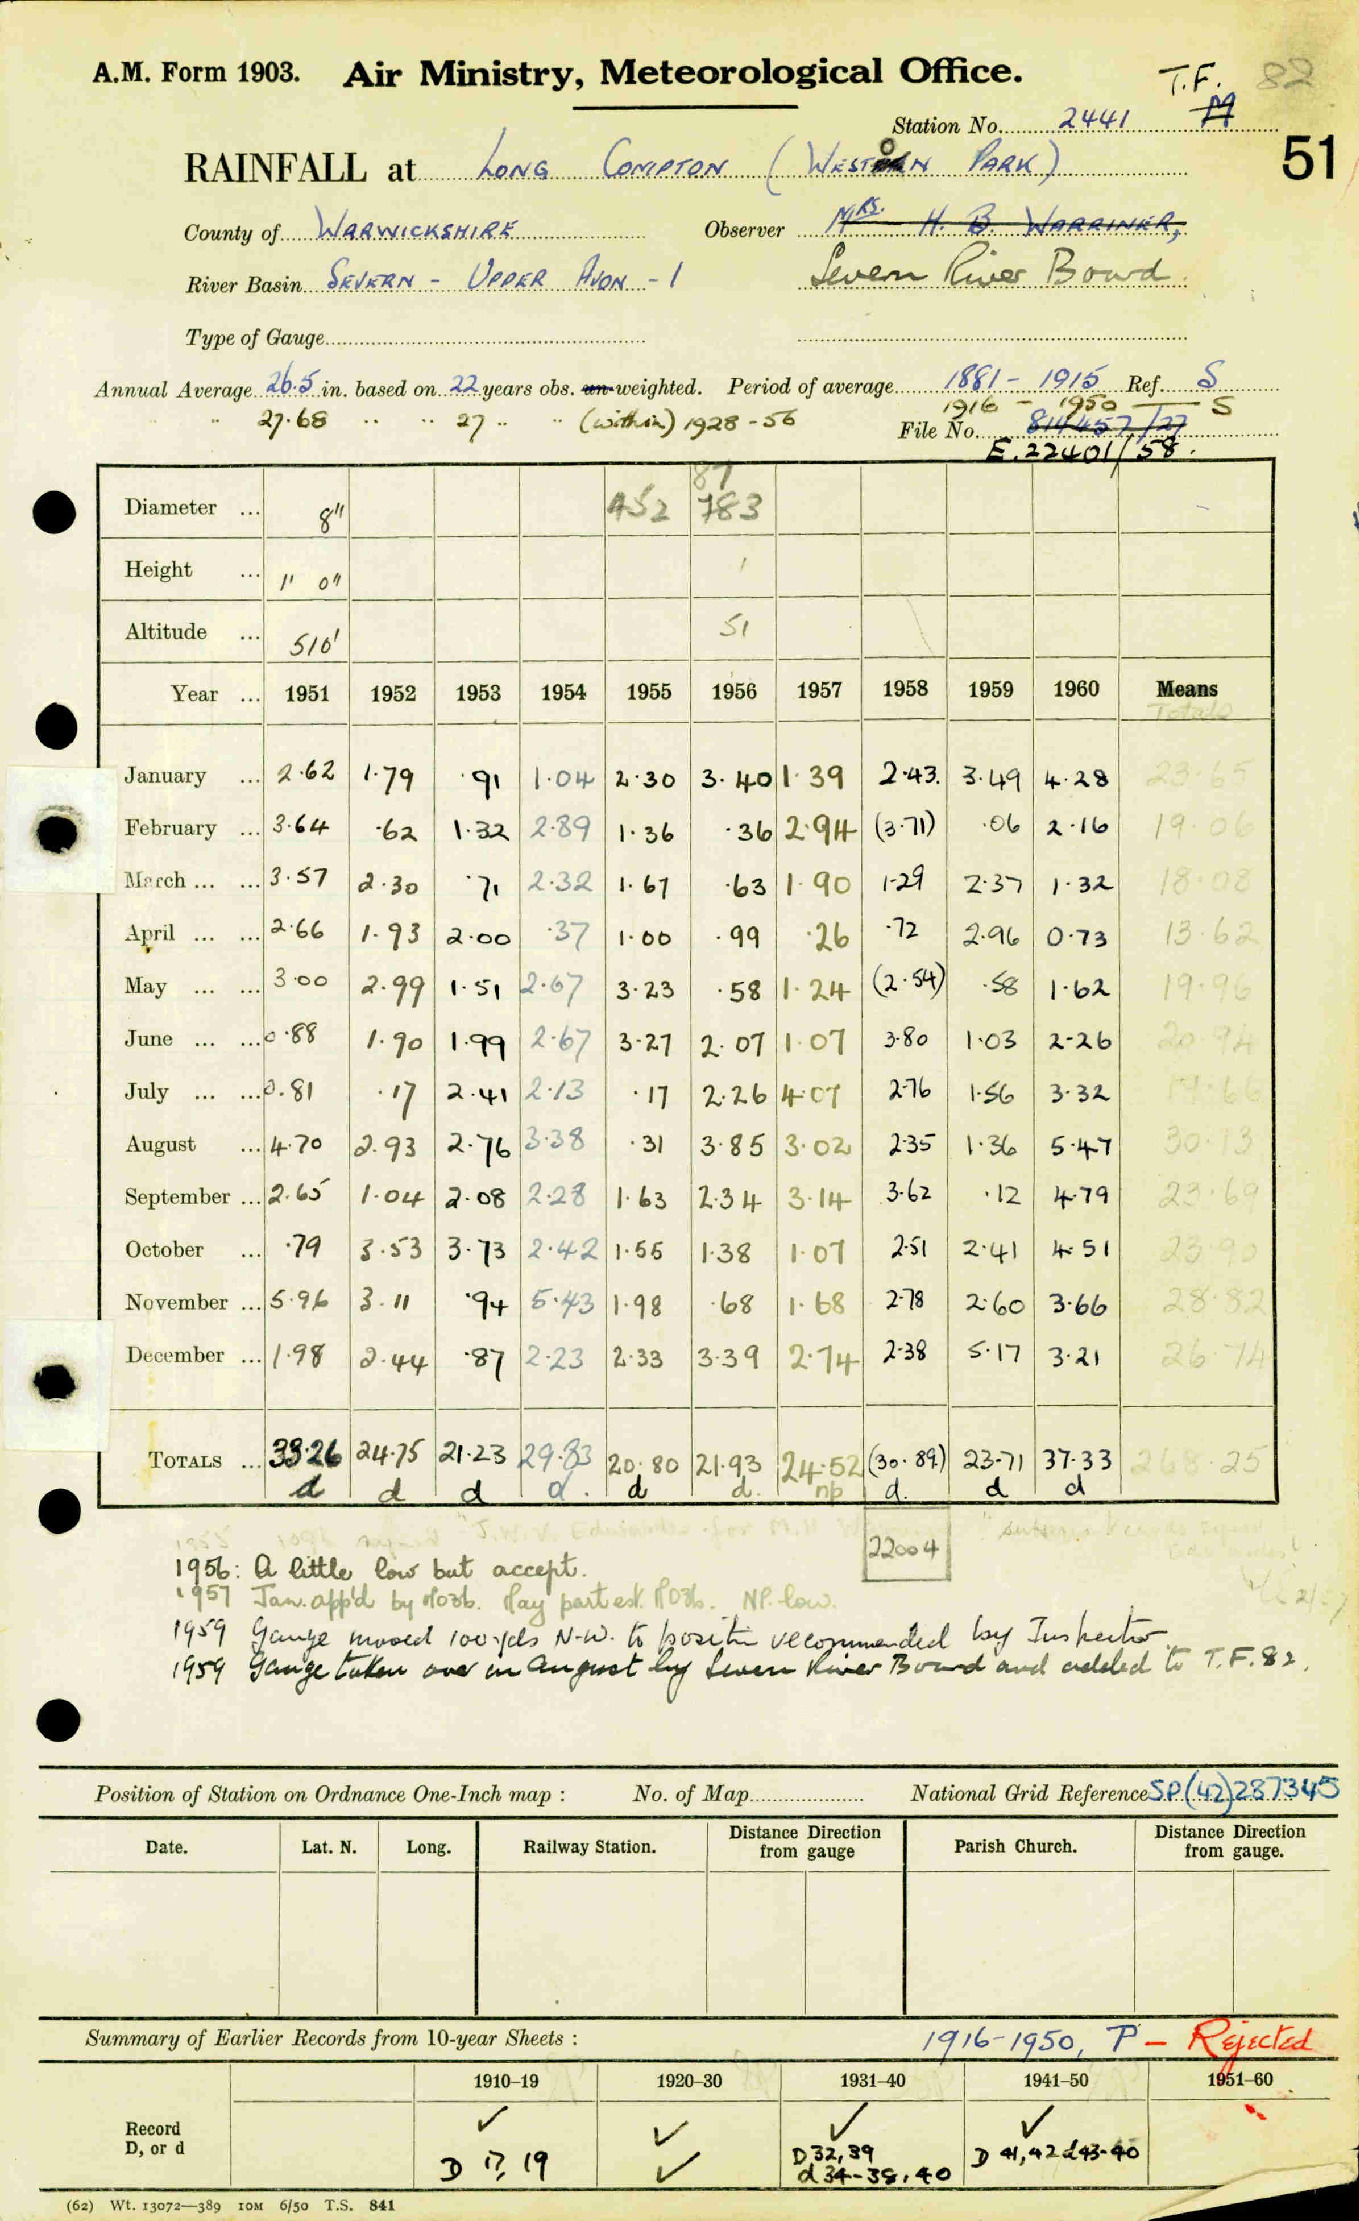 A.M. Form 1903. Air Ministry, Meteorological Office. T.F. 82
Station No. 2441 M
51
RAINFALL at LONG COMPTON (WESTON PARK)
County of WARWICKSHIRE Observer MRS. H. B. WARRINER,
River Basin SEVERN - UPPER AVON - 1 Severn River Board.
Type of Gauge
Annual Average 26.5 in. based on 22 years obs. un-weighted. Period of average 1881 - 1915 Ref. S
" 27.68 " " 27 " " (within) 1928-56 1916 - 1950 S
File No. 814457/27
E.22401/58.
87
Diameter ... 8" 452 783
Height ... 1' 0" 1
Altitude ... 510' 51
Year ... 1951 1952 1953 1954 1955 1956 1957 1958 1959 1960 Means
Totals
January ... 2.62 1.79 .91 1.04 2.30 3.40 1.39 2.43. 3.49 4.28 23.65
February ... 3.64 .62 1.32 2.89 1.36 .36 2.94 (3.71) .06 2.16 19.06
March ... ... 3.57 2.30 .71 2.32 1.67 .63 1.90 1.29 2.37 1.32 18.08
April ... ... 2.66 1.93 2.00 .37 1.00 .99 .26 .72 2.96 0.73 13.62
May ... ... 3.00 2.99 1.51 2.67 3.23 .58 1.24 (2.54) .58 1.62 19.96
June ... ... 0.88 1.90 1.99 2.67 3.27 2.07 1.07 3.80 1.03 2.26 20.94
July ... ... 0.81 .17 2.41 2.13 .17 2.26 4.07 2.76 1.56 3.32 19.66
August ... 4.70 2.93 2.76 3.38 .31 3.85 3.02 2.35 1.36 5.47 30.13
September ... 2.65 1.04 2.08 2.28 1.63 2.34 3.14 3.62 .12 4.79 23.69
October ... .79 3.53 3.73 2.42 1.55 1.38 1.07 2.51 2.41 4.51 23.90
November ... 5.96 3.11 .94 5.43 1.98 .68 1.68 2.78 2.60 3.66 28.82
December ... 1.98 2.44 .87 2.23 2.33 3.39 2.74 2.38 5.17 3.21 26.74
TOTALS ... 33.26 24.75 21.23 29.83 20.80 21.93 24.52 (30.89) 23.71 37.33 268.25
d d d d. d d. np d. d d
22004
1956: A little low but accept.
1957 Jan. app'd by M03b. May part est. M03b. NP. low.
1959 Gauge moved 100 yds N-W. to position recommended by Inspector
1959 Gauge taken over in August by Severn River Board and added to T.F.82.
Position of Station on Ordnance One-Inch map : No. of Map National Grid Reference SP(42)287345
Date. Lat. N. Long. Railway Station. Distance Direction from gauge Parish Church. Distance Direction from gauge.
Summary of Earlier Records from 10-year Sheets : 1916-1950, P - Rejected
1910-19 1920-30 1931-40 1941-50 1951-60
Record ✓ ✓ ✓ ✓
D, or d D 17, 19 ✓ D 32,39 D 41,42 d 43-40
d 34-38, 40
(62) Wt. 13072—389 10M 6/50 T.S. 841